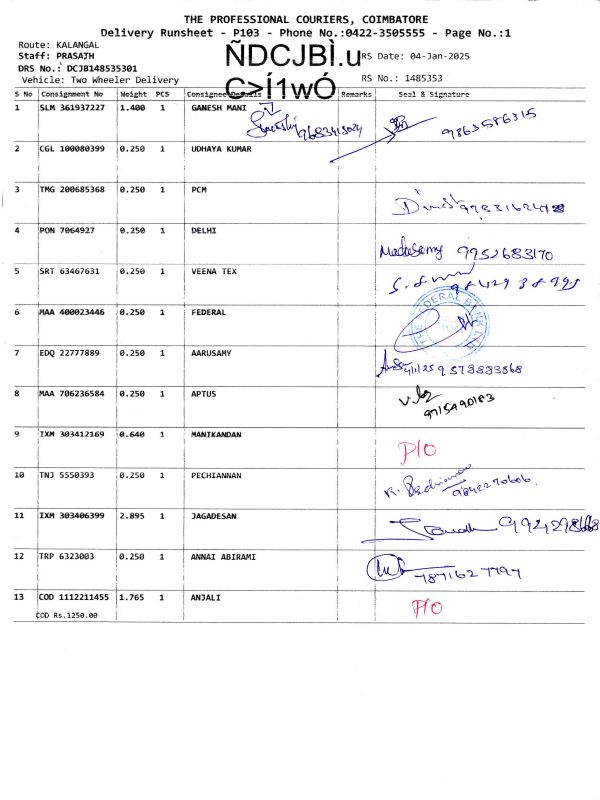 THE PROFESSIONAL COURIERS, COIMBATORE
Delivery Runsheet - P103 - Phone No.:0422-3505555 - Page No.:1
Route: KALANGAL
Staff: PRASAJH
ÑDCJBÌ.u
RS Date: 04-Jan-2025
DRS No.: DCJB148535301
Vehicle: Two Wheeler Delivery
C>Í1wÓ
RS No.: 1485353
S No Consignment No Weight PCS Consignee Details Remarks Seal & Signature
1 SLM 361937227 1.400 1 GANESH MANI 9863586315
2 CGL 100080399 0.250 1 UDHAYA KUMAR
3 TMG 200685368 0.250 1 PCM
4 PON 7064927 0.250 1 DELHI Madasamy 9952683170
5 SRT 63467631 0.250 1 VEENA TEX
6 MAA 400023446 0.250 1 FEDERAL
7 EDQ 22777889 0.250 1 AARUSAMY
8 MAA 706236584 0.250 1 APTUS
9 IXM 303412169 0.640 1 MANIKANDAN P/O
10 TNJ 5550393 0.250 1 PECHIANNAN 9842290606.
11 IXM 303406399 2.895 1 JAGADESAN
12 TRP 6323003 0.250 1 ANNAI ABIRAMI 7871627797
13 COD 1112211455 1.765 1 ANJALI P/O
COD Rs.1250.00